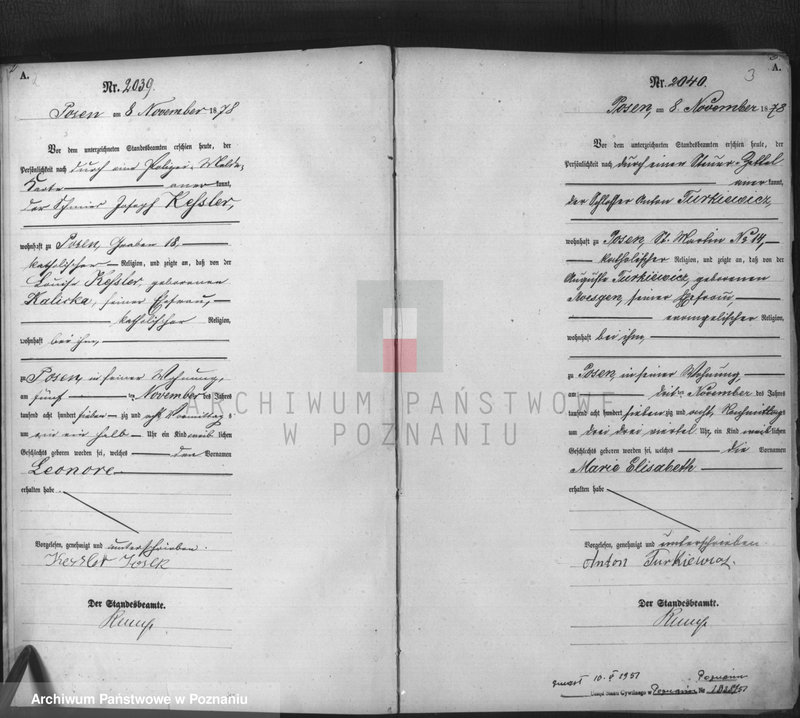 A.
Nr. 2039.
Posen am 8 November 1878
Vor dem unterzeichneten Standesbeamten erschien heute, der
Persönlichkeit nach durch eine Polizei-Melde-
Karte anerkannt,
der Schmied Joseph Keßler,
wohnhaft zu Posen, Graben 18,
katholischer Religion, und zeigte an, daß von der
Louise Keßler, geborenen
seiner Ehefrau,
katholischer Religion,
wohnhaft bei ihm,
zu Posen, in seiner Wohnung,
am fünf ten November des Jahres
tausend acht hundert sieben zig und acht Vormittags
um ein ein halb Uhr ein Kind weiblichen
Geschlechts geboren worden sei, welches den Vornamen
Leonore
erhalten habe
Vorgelesen, genehmigt und unterschrieben.
Kessler Josek
Der Standesbeamte.
A.
3
Nr. 2040.
Posen, am 8. November 1878
Vor dem unterzeichneten Standesbeamten erschien heute, der
Persönlichkeit nach durch einen Steuer-Zettel
anerkannt,
der Schlosser Anton Turkiewicz,
wohnhaft zu Posen, St. Martin No 14,
katholischer Religion, und zeigte an, daß von der
Auguste Turkiewicz, geborenen
Moesgen, seiner Ehefrau,
evangelischer Religion,
wohnhaft bei ihm,
zu Posen, in seiner Wohnung,
am dritten November des Jahres
tausend acht hundert sieben zig und acht, Nachmittags
um drei drei viertel Uhr, ein Kind weiblichen
Geschlechts geboren worden sei, welches die Vornamen
Marie Elisabeth
erhalten habe
Vorgelesen, genehmigt und unterschrieben.
Anton Turkiewicz.
Der Standesbeamte.
10. V 1951
Urząd Stanu Cywilnego w Poznaniu Nr
ARCHIWUM PAŃSTWOWE
W POZNANIU
Archiwum Państwowe w Poznaniu